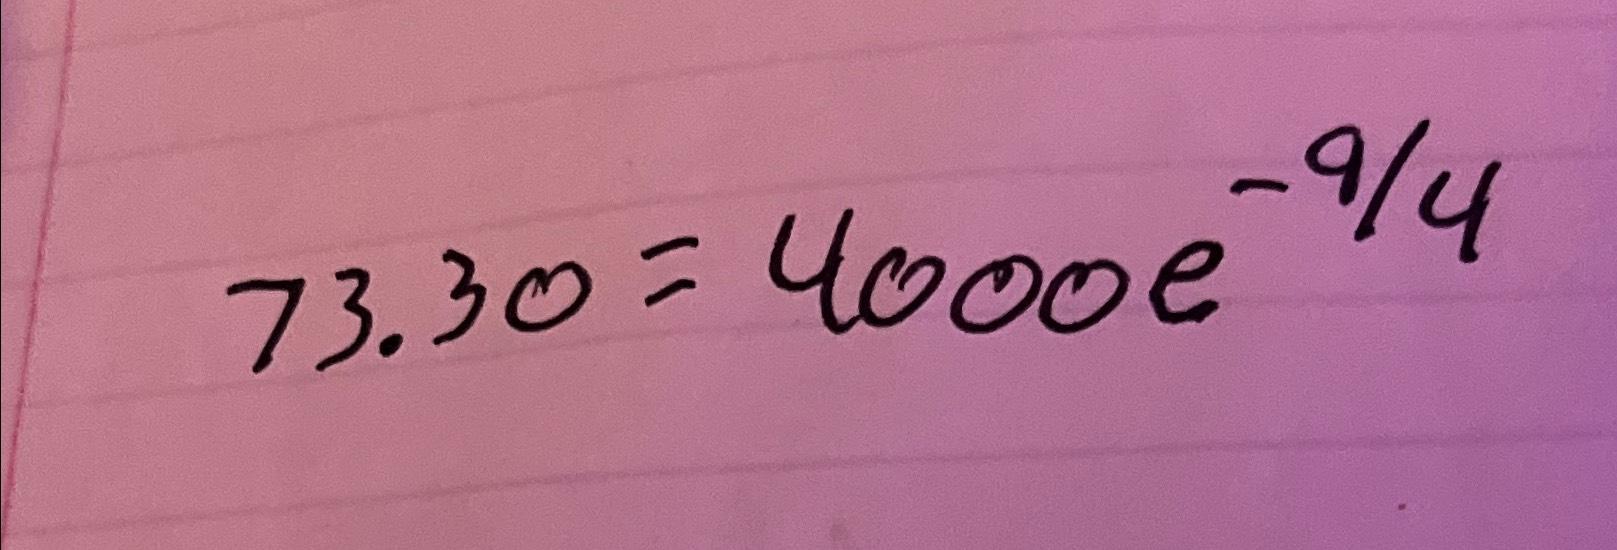 73.30 = 4000e^{-9/4}